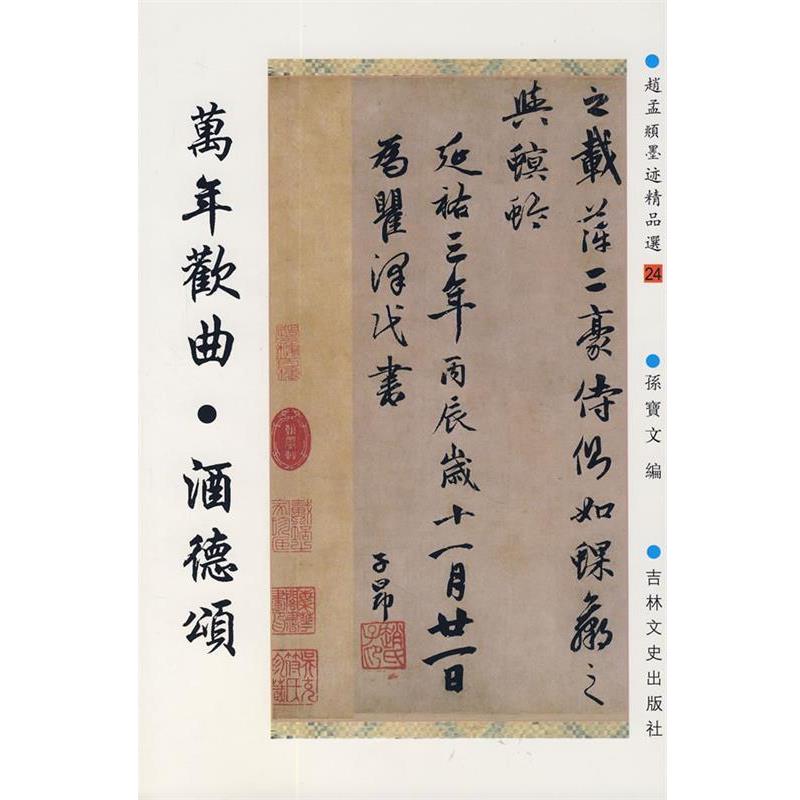 趙孟頫墨迹精品選 24
孫寶文 編
吉林文史出版社
之載萍二豪侍側如蜾蠃之
與螟蛉
延祐三年丙辰歲十一月廿一日
為瞿澤民書
子昂
趙氏子昂
萬年歡曲•酒德頌